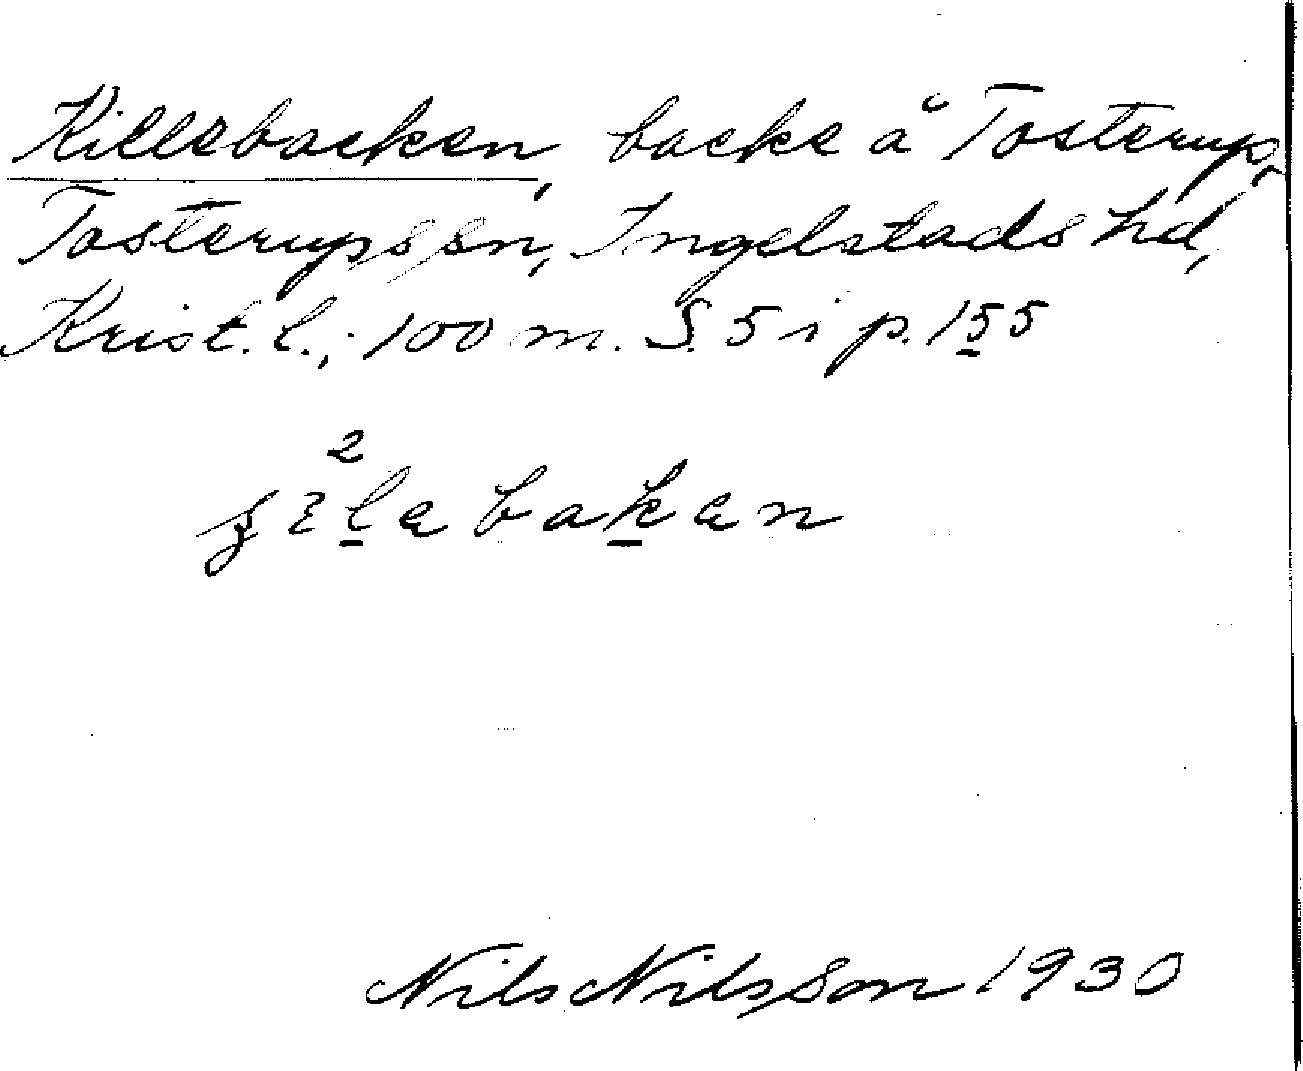 Killebacken, backe å Tosterup,
Tosterups sn, Ingelstads hd,
Krist. l.; 100 m. S. 5 i p. 155
2
bakan
Nils Nilsson 1930